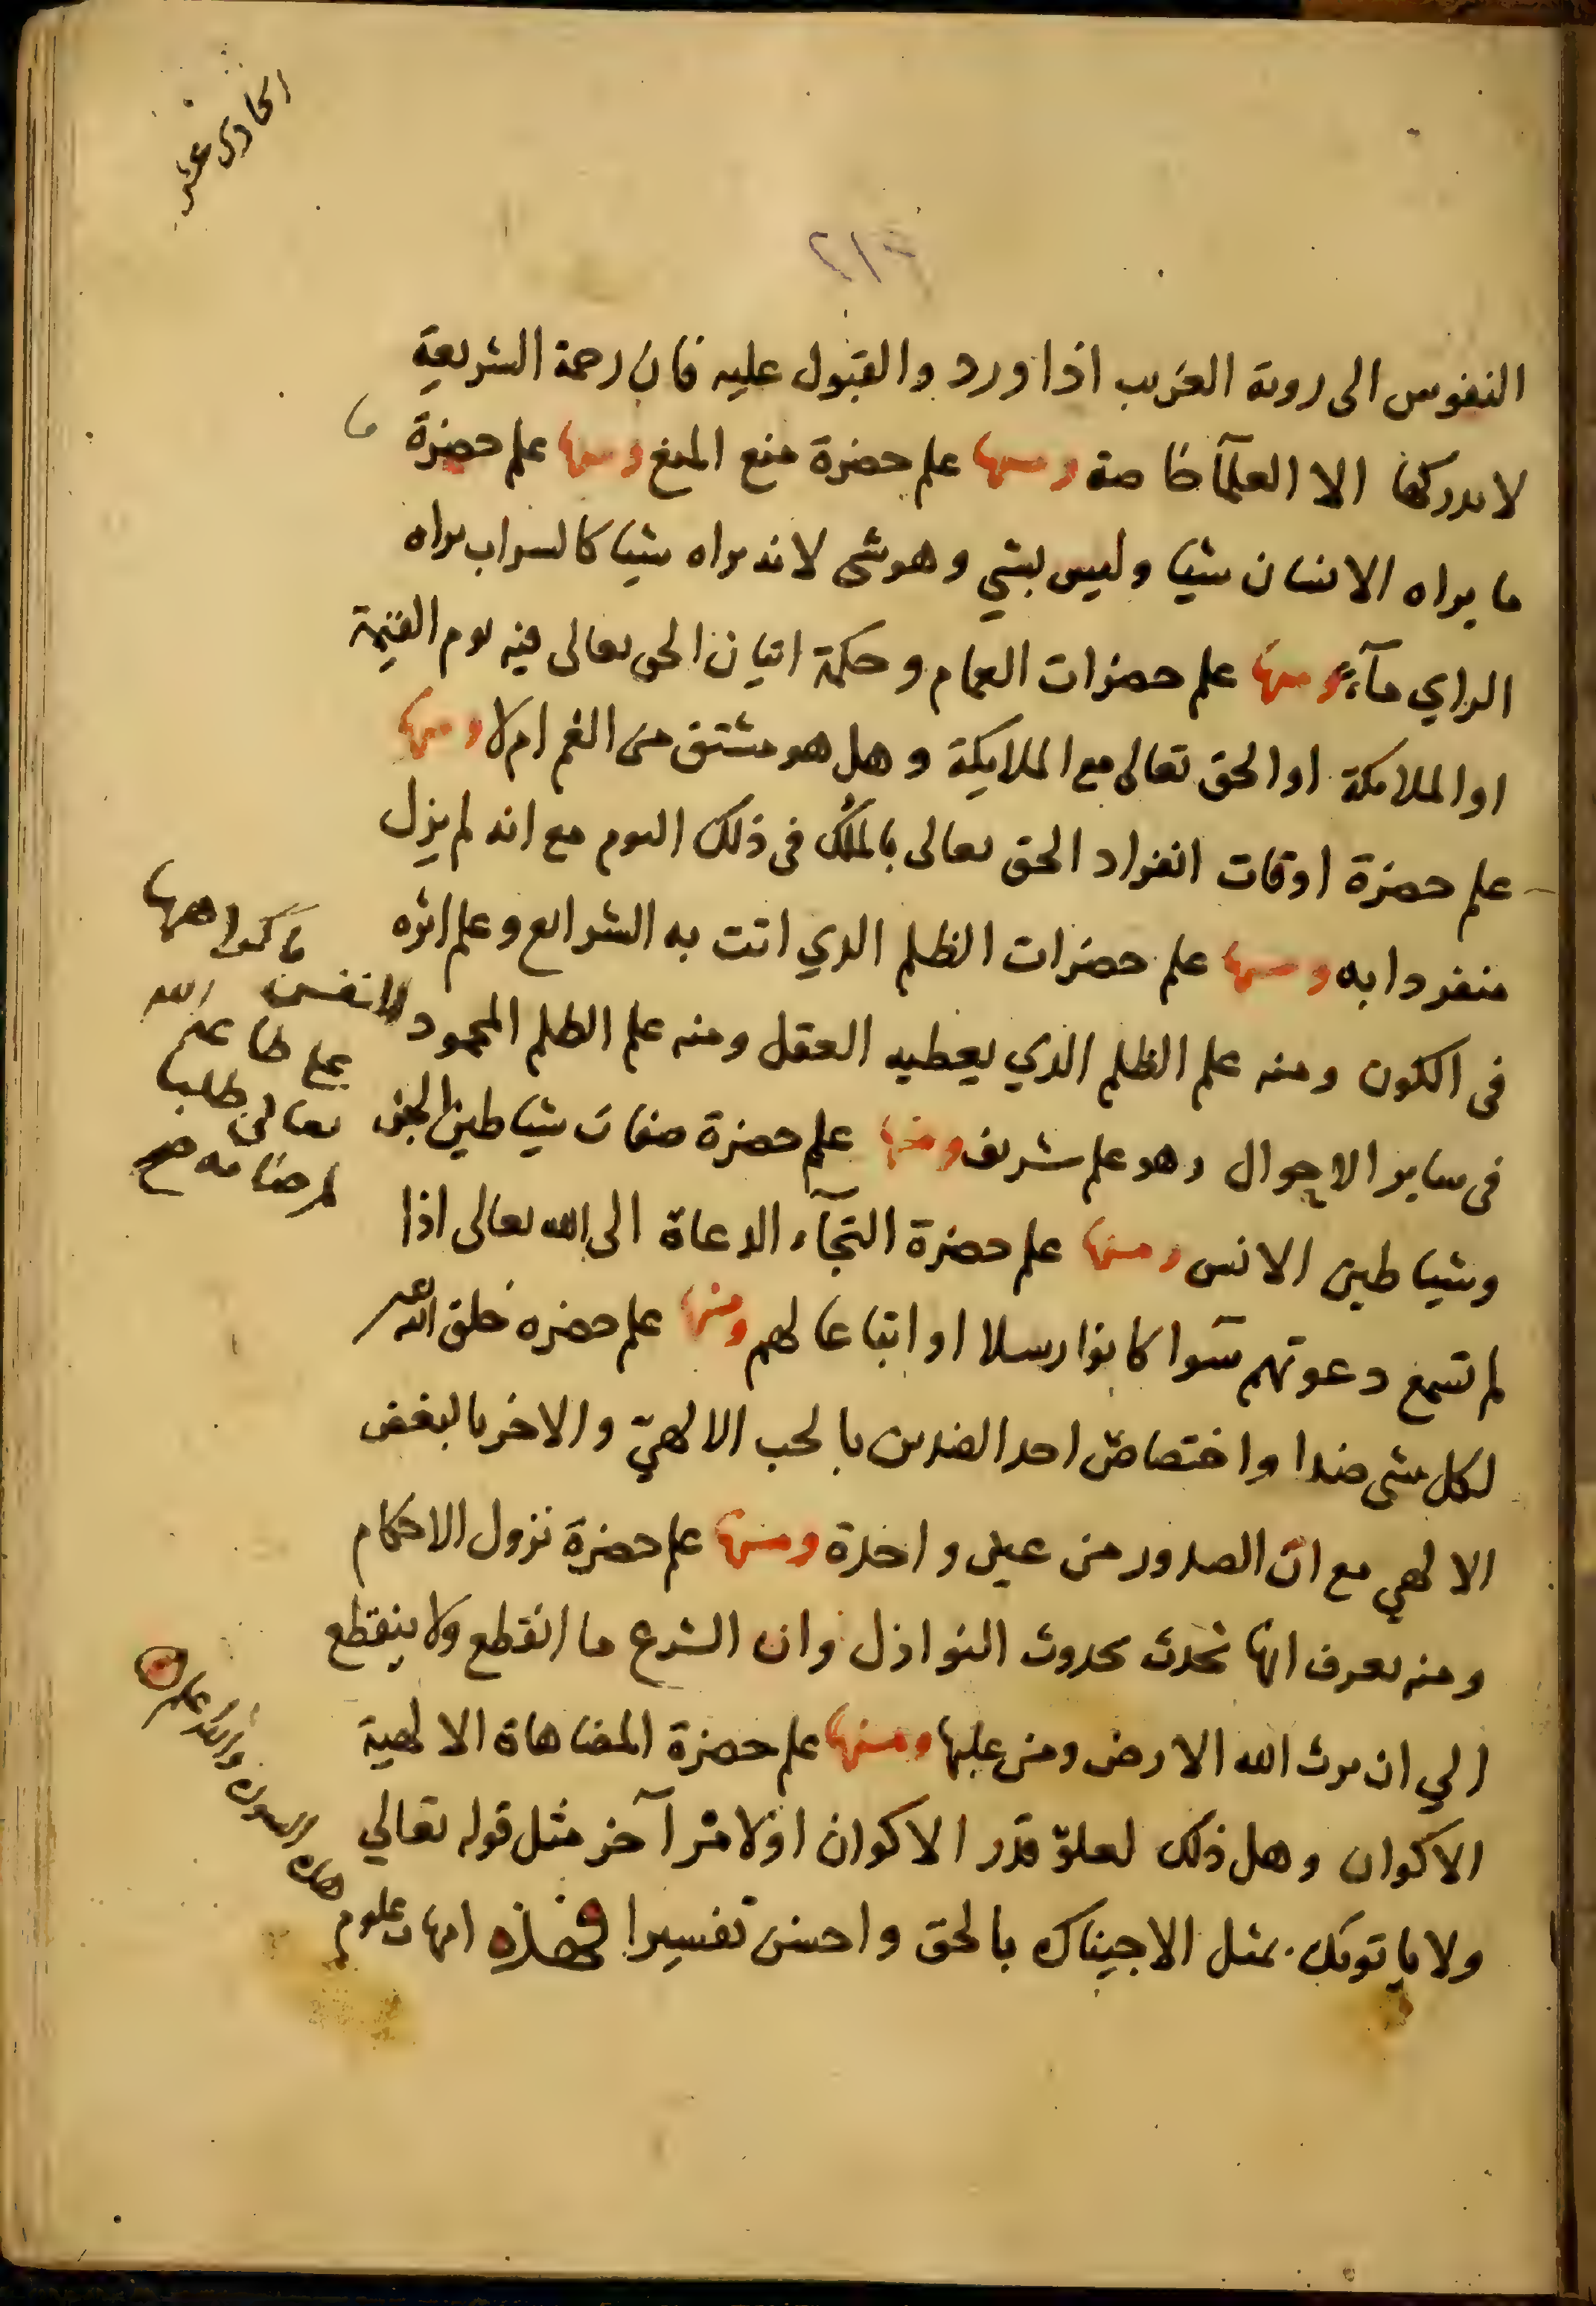 الحادى عشر
٢١٣
النفوس الى روية الغريب اذا ورد والقبول عليه فان رحمة الشريعة
لا يدركها الا العلمآ خاصة ومنها علم حضرة منع المنع ومنها علم حضرة
ما يراه الانسان شيا وليس بشي وهو شى لانه يراه شيا كالسراب يراه
الراي مآء ومنها علم حضرات الغمام وحكمة اتيان الحق تعالى فيه يوم القيمة
او الملايكة او الحق تعالى مع الملايكة وهل هو مشتق من الغم ام لا ومنها
علم حضرة اوقات انفراد الحق تعالى بالملك فى ذلك اليوم مع انه لم يزل
منفردا به ومنها علم حضرات الظلم الذي اتت به الشرايع وعلم اثره
فى الكون ومنه علم الظلم الذي يعطيه العقل ومنه علم الظلم المحمود
فى ساير الاحوال وهو علم شريف ومنها علم حضرة صفات شياطين الجن
وشياطين الانس ومنها علم حضرة التجآء الدعاة الى الله تعالى اذا
لم تسمع دعوتهم سوآ كانوا رسلا او اتباعا لهم ومنها علم حضره خلق الله
لكل شى ضدا واختصاص احد الضدين بالحب الالهيّ والاخر بالبغض
الالهي مع ان الصدور من عين واحدة ومنها علم حضرة نزول الاحكام
ومنه يعرف انها تحدث بحدوث النوازل وان الشرع ما انقطع ولا ينقطع
الي ان يرث الله الارض ومن عليها ومنها علم حضرة المضاهاة الالهية
الاكوان وهل ذلك لعلوّ قدر الاكوان او لامر آخر مثل قوله تعالي
ولا ياتونك بمثل الا جيناك بالحق واحسن تفسيرا فهذه امهات علوم
هذه السورة والله اعلم
كاكراهها
للنفس
على طاعة الله
تعالى طلبا
لمرضاته صح